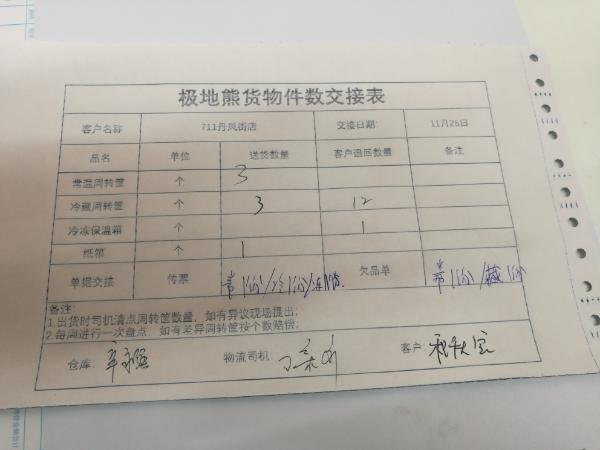 极地熊货物件数交接表
客户名称 711丹凤街店 交接日期: 11月25日
品名 单位 送货数量 客户退回数量 备注
常温周转筐 个 3
冷藏周转筐 个 3 12
冷冻保温箱 个 1
纸箱 个 1
单据交接 传票 常1份/冷1份/冻1份 欠品单 常1份/藏1份
备注:
1.出货时司机清点周转筐数量，如有异议现场提出;
2.每周进行一次盘点，如有差异周转筐按个数赔偿;
仓库: 物流司机: 客户: